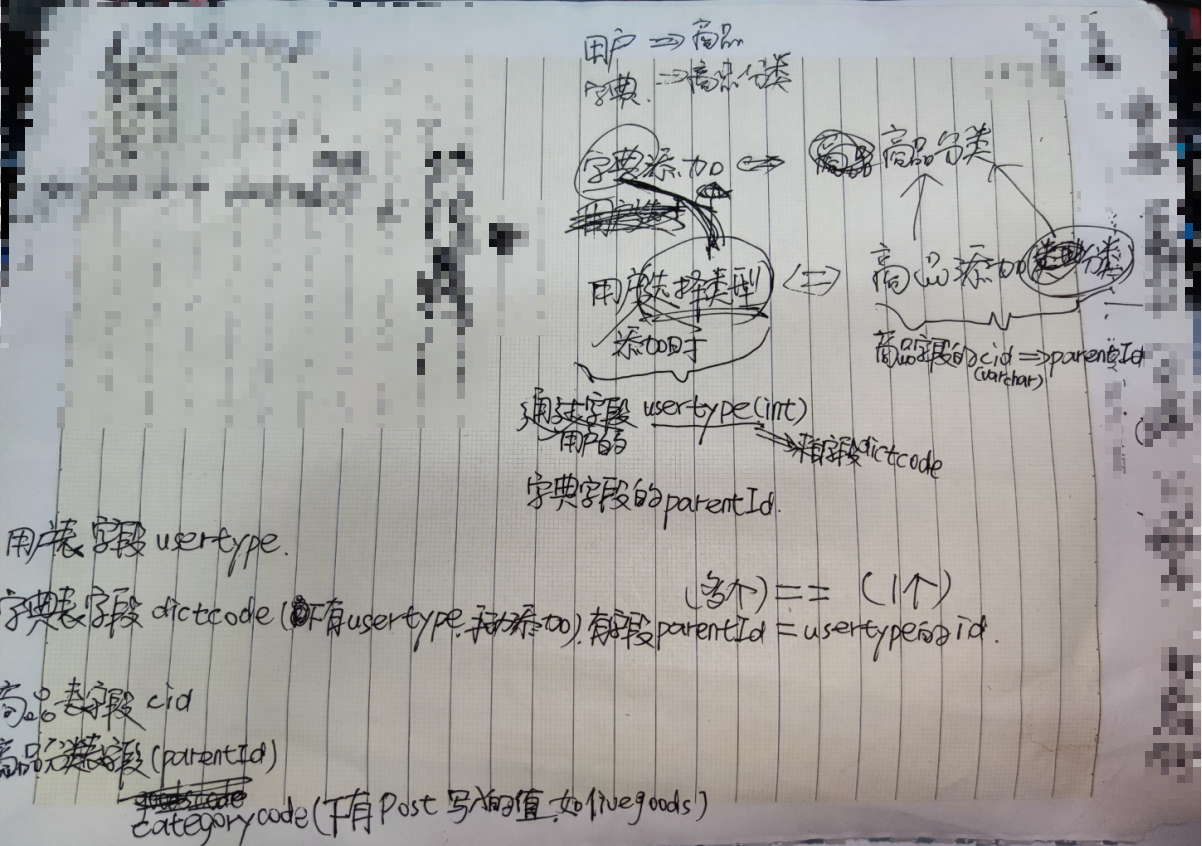 用户 => 商品
字典 => 商品分类
字典添加 <=> 商品分类
用户选择类型 <=> 商品添加分类
添加由于
商品字段的cid => parentId
(varchar)
通过字段 usertype(int)
用户的
来自字段dictcode
字典字段的parentId.
用户表字段usertype.
(多个) == (1个)
字典表字段dictcode(下有usertype,手动添加),有字段parentId=usertype的id.
商品表字段cid
商品分类表字段(parentId)
categorycode(下有Post写入的值,如livegoods)